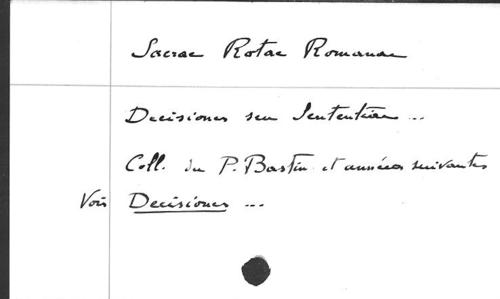 Sacrae Rotae Romanae
Decisiones seu Sententiae ...
Coll. du P. Bastin et années suivantes
Voir Decisiones ...